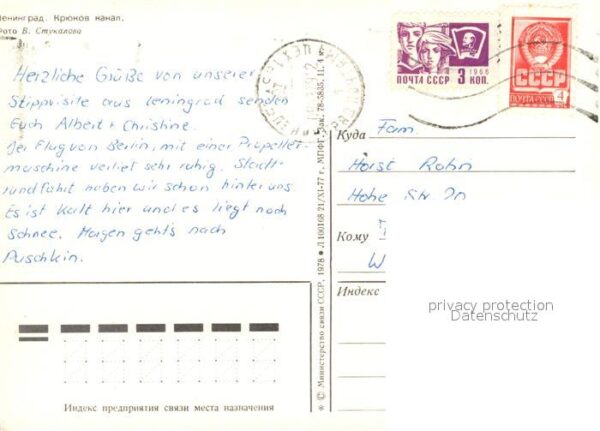 Ленинград. Крюков канал.
Фото В. Стукалова
Herzliche Grüße von unserer
Stippvisite aus Leningrad senden
Euch Albert + Christine.
Der Flug von Berlin, mit einer Propeller-
maschine verlief sehr ruhig. Stadt-
rundfahrt haben wir schon hinter uns
Es ist kalt hier und es liegt noch
Schnee. Morgen geht's nach
Puschkin.
Индекс предприятия связи места назначения
* © Министерство связи СССР, 1978 • Л 100168 21/XI-77 г., МПФГ. Зак. 78-5835. Ц. 4 к.
ПОЧТА СССР 3 КОП.
1966
СССР
ПОЧТА СССР 4
Куда Fam
Horst Rahn
Hohe Str
Кому
W
Индекс
privacy protection
Datenschutz